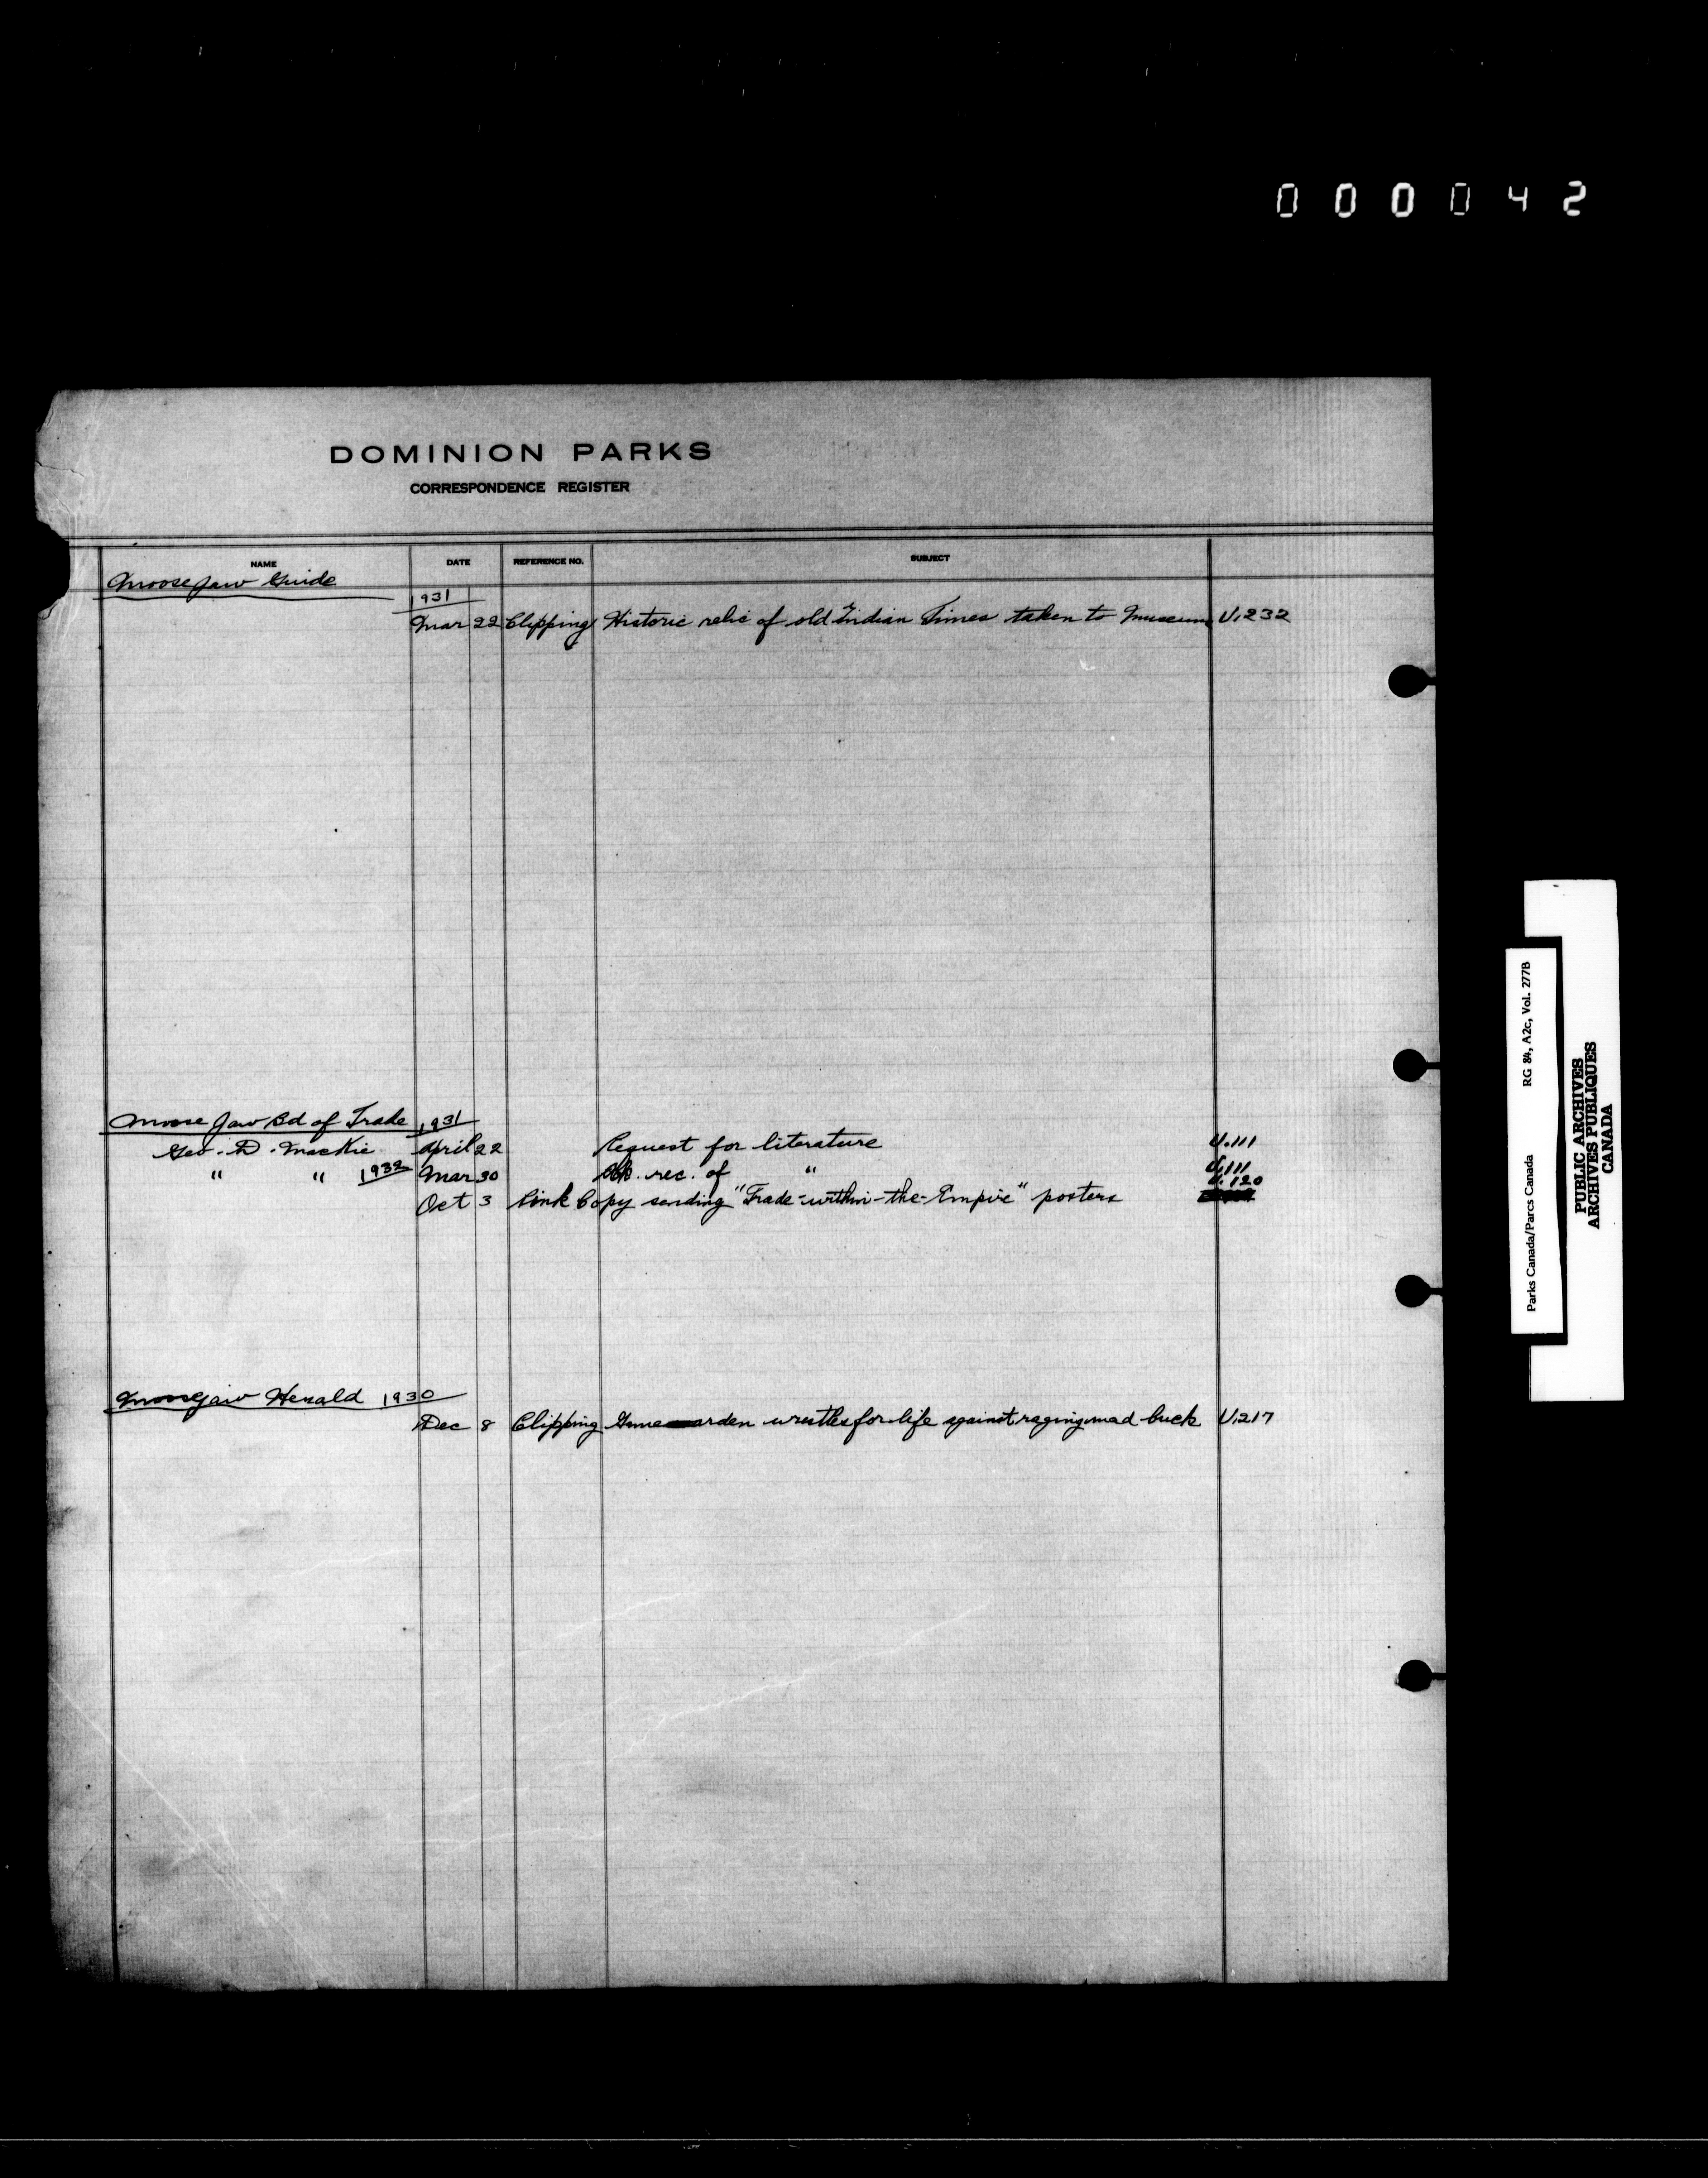 000042
DOMINION PARKS
CORRESPONDENCE REGISTER
NAME DATE REFERENCE NO. SUBJECT
Moose Jaw Guide
1931
Mar 22 Clipping Historic relic of old Indian Times taken to Museum U.232
Moose Jaw Bd of Trade 1931
Geo. D. MacKie April 22 Request for literature U.111
" " 1932 Mar 30 rec. of " U.111
Oct 3 Pink Copy sending "Trade-within-the-Empire" posters U.120
Moosejaw Herald 1930
Dec 8 Clipping arden wrestles for life against raging mad buck U.217
Parks Canada/Parcs Canada RG 84, A2c, Vol. 277B
PUBLIC ARCHIVES
ARCHIVES PUBLIQUES
CANADA